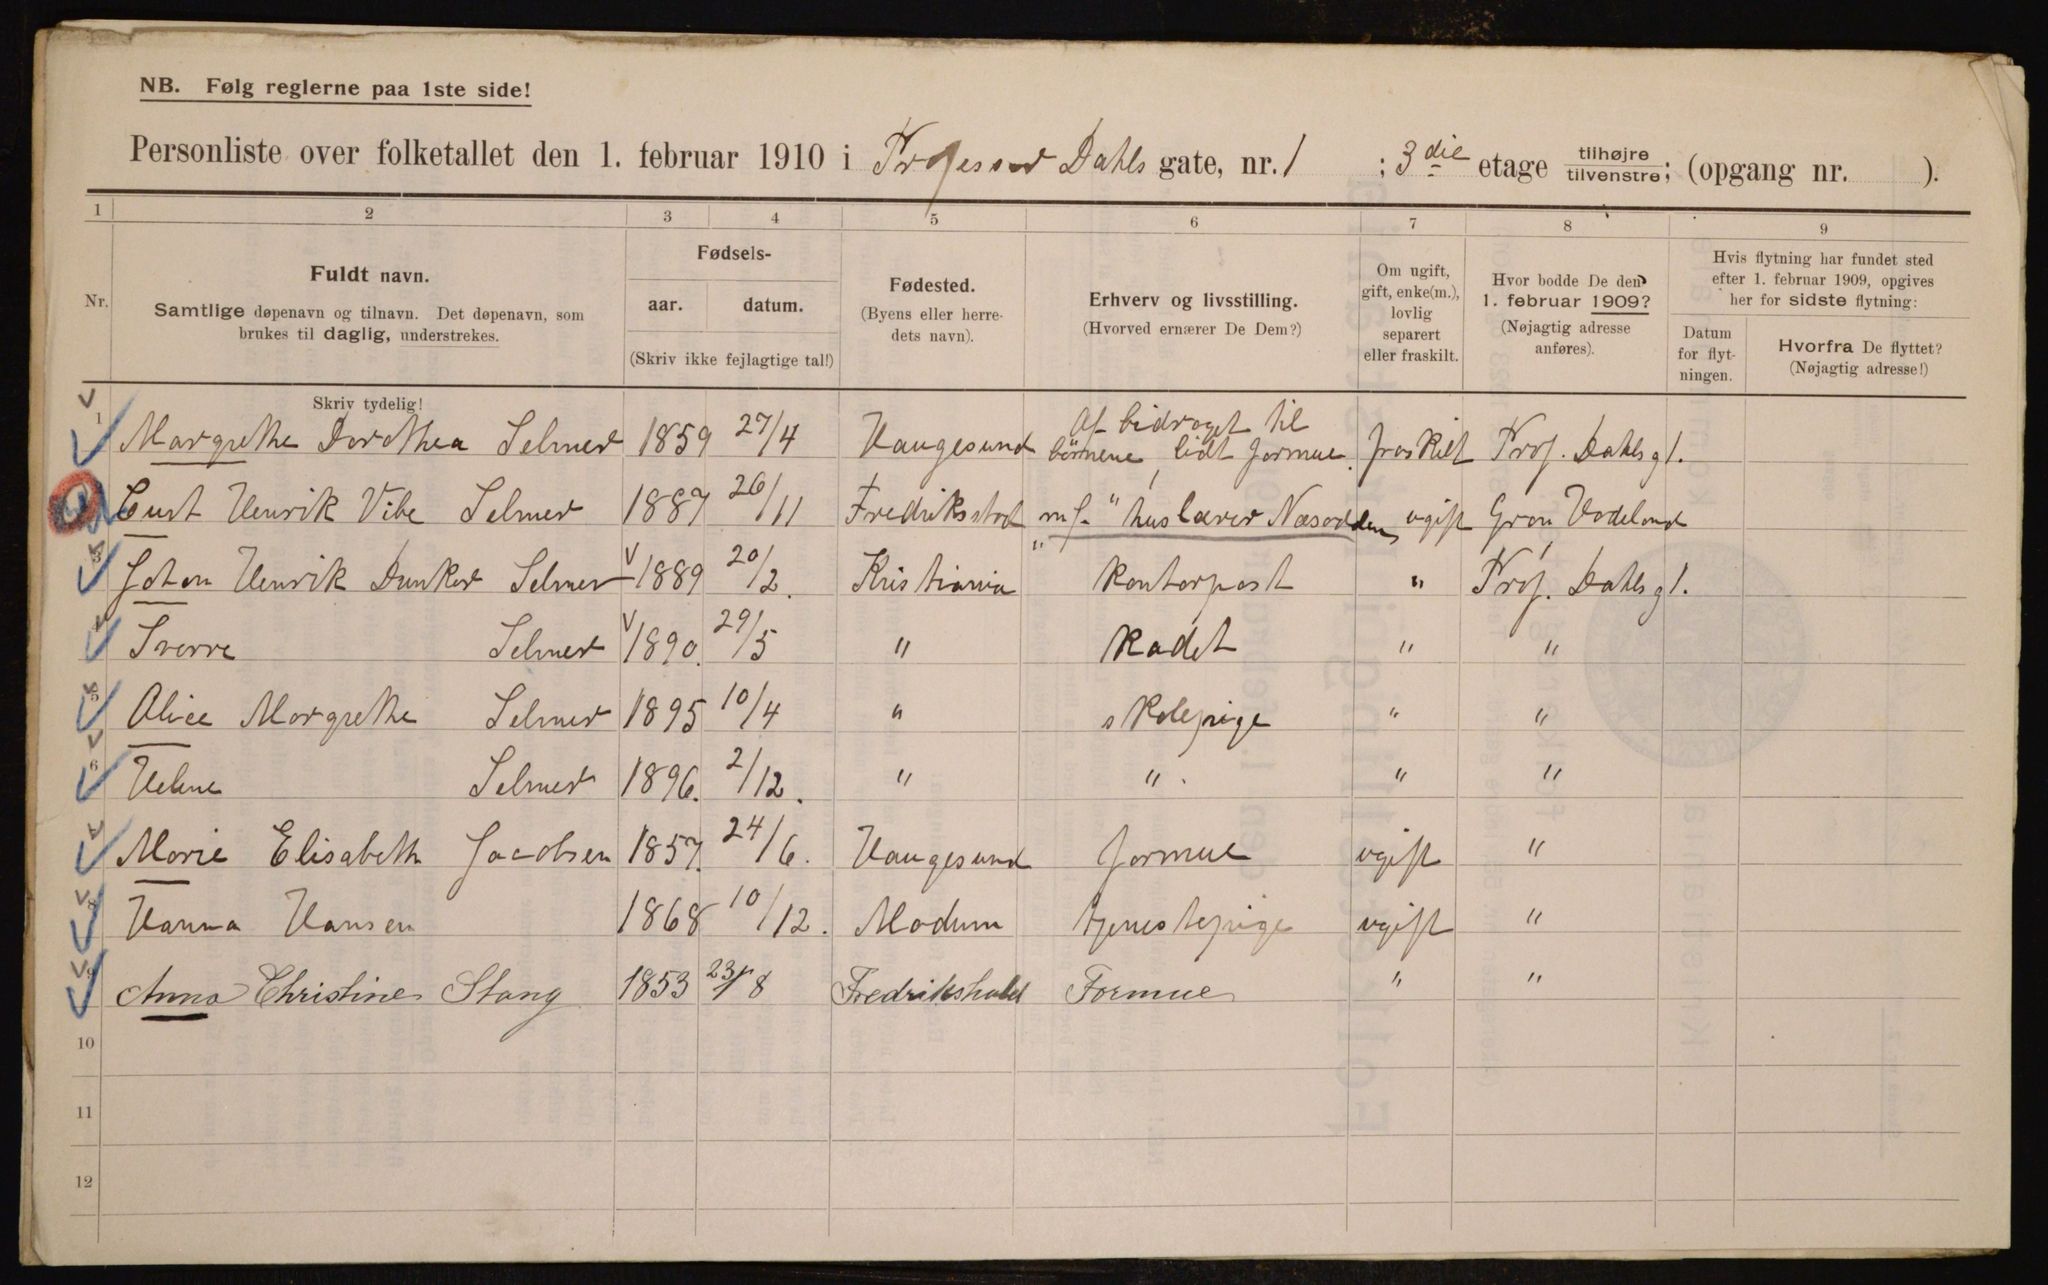 NB. Følg reglerne paa 1ste side!
Personliste over folketallet den 1. februar 1910 i Professor Dahls gate, nr. 1 ; 3die etage tilhøjre/tilvenstre; (opgang nr. ).
1 2 3 4 5 6 7 8 9
Nr.
Fuldt navn.
Samtlige døpenavn og tilnavn. Det døpenavn, som
brukes til daglig, understrekes.
Skriv tydelig!
Fødsels-
aar. datum.
(Skriv ikke fejlagtige tal!)
Fødested.
(Byens eller herre-
dets navn).
Erhverv og livsstilling.
(Hvorved ernærer De Dem?)
Om ugift,
gift, enke(m.),
lovlig
separert
eller fraskilt.
Hvor bodde De den
1. februar 1909?
(Nøjagtig adresse
anføres).
Hvis flytning har fundet sted
efter 1. februar 1909, opgives
her for sidste flytning:
Datum
for flyt-
ningen.
Hvorfra De flyttet?
(Nøjagtig adresse!)
1 Margrethe Dorothea Selmer 1859 27/4 Haugesund Af bidraget til børnene, lidt formue. fraskilt Prof. Dahls g 1.
Henrik Vibe Selmer 1887 26/11 Fredriksstad m.f. " huslærer Næsodden ugift
3 Johan Henrik Dunker Selmer 1889 20/2. Kristiania Kontorpost " Prof. Dahls g 1.
4 Sverre Selmer 1890. 29/5 " Kadet " "
5 Alice Margrethe Selmer 1895 10/4 " skolepige " "
6 Helene Selmer 1896. 2/12. " " " "
7 Marie Elisabeth Jacobsen 1857. 24/6. Haugesund formue ugift "
8 Hanna Hansen 1868 10/12. Modum tjenestepige ugift "
9 Anna Christine Stang 1853 23/8 Fredrikshald Formue " "
10
11
12